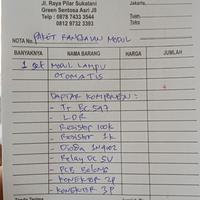 Jl. Raya Pilar Sukatani
Green Sentosa Asri J8
Telp : 0878 7433 3544
0812 9732 3383
Jakarta,
Tuan
Toko
NOTA No.
PAKET RANGKAIAN MODUL
BANYAKNYA NAMA BARANG HARGA JUMLAH
1 set MODUL LAMPU
OTOMATIS
DAFTAR KOMPONEN :
- Tr BC 547
- LDR
- Resistor 100k
- Resistor 1k
- Dioda 1N4002
- Relay DC 5V
- PCB Bolong
- KONEKTOR 2P
- KONEKTOR 3P
Tanda Terima